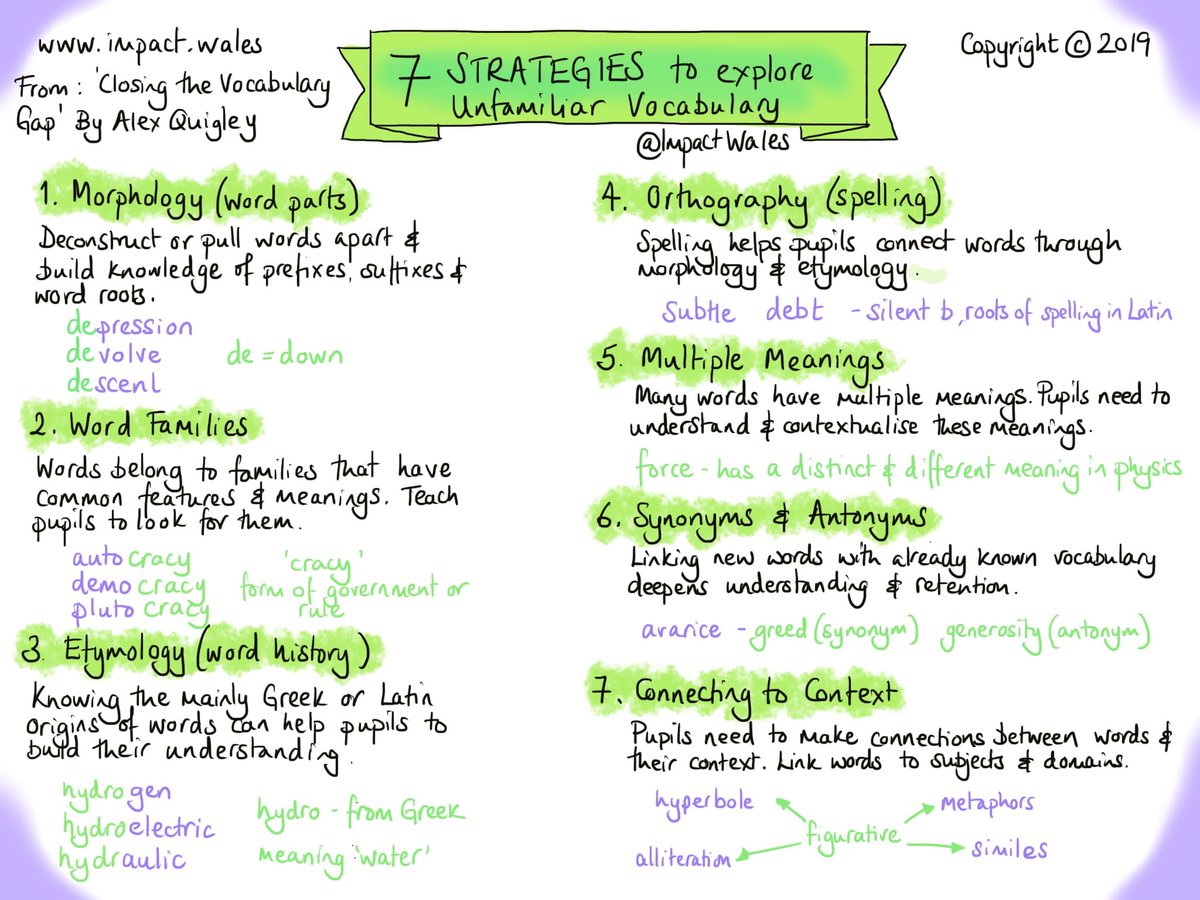 www.impact.wales
From: 'Closing the Vocabulary
Gap' By Alex Quigley
7 STRATEGIES to explore
Unfamiliar Vocabulary
@ImpactWales
Copyright © 2019
1. Morphology (word parts)
Deconstruct or pull words apart &
build knowledge of prefixes, suffixes &
word roots.
depression
devolve de = down
descent
2. Word Families
Words belong to families that have
common features & meanings. Teach
pupils to look for them.
autocracy 'cracy'
democracy form of government or
plutocracy rule
3. Etymology (word history)
Knowing the mainly Greek or Latin
origins of words can help pupils to
build their understanding.
hydrogen
hydroelectric hydro - from Greek
hydraulic meaning 'water'
4. Orthography (spelling)
Spelling helps pupils connect words through
morphology & etymology.
subtle debt - silent b, roots of spelling in Latin
5. Multiple Meanings
Many words have multiple meanings. Pupils need to
understand & contextualise these meanings.
force - has a distinct & different meaning in physics
6. Synonyms & Antonyms
Linking new words with already known vocabulary
deepens understanding & retention.
avarice - greed (synonym) generosity (antonym)
7. Connecting to Context
Pupils need to make connections between words &
their context. Link words to subjects & domains.
hyperbole metaphors
figurative
alliteration similes